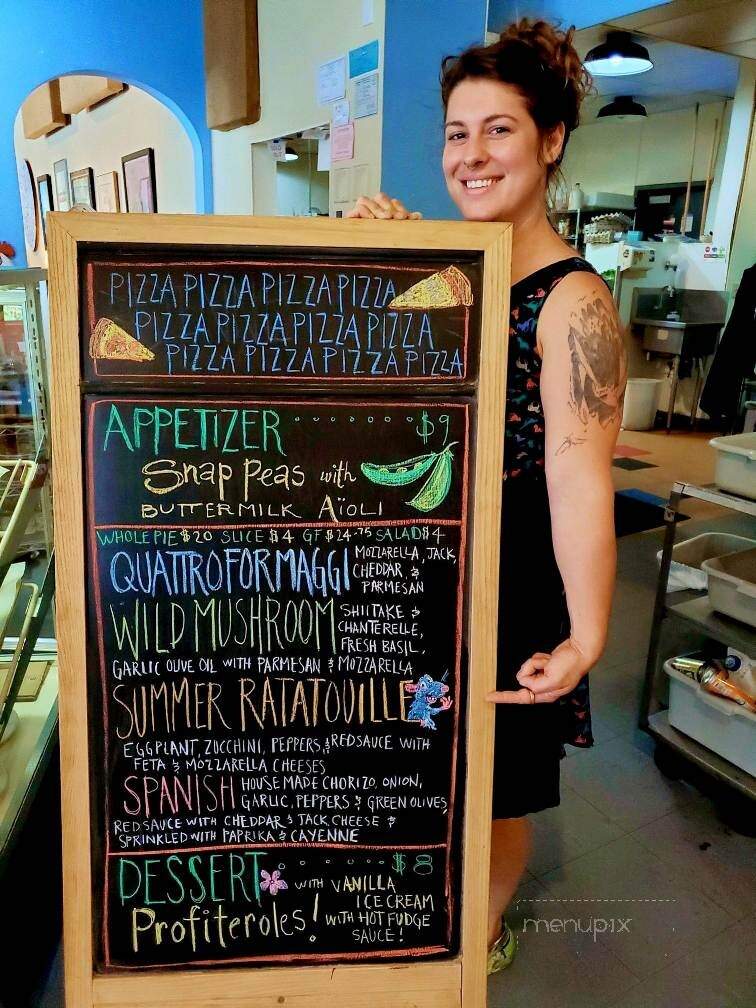 PIZZA PIZZA PIZZA PIZZA
PIZZA PIZZA PIZZA PIZZA
PIZZA PIZZA PIZZA PIZZA
APPETIZER $9
Snap Peas with
BUTTERMILK AÏOLI
WHOLE PIE $20 SLICE $4 GF $24.75 SALAD $4
QUATTRO FORMAGGI MOZZARELLA, JACK,
CHEDDAR, &
PARMESAN
WILD MUSHROOM SHIITAKE &
CHANTERELLE,
FRESH BASIL,
GARLIC OLIVE OIL WITH PARMESAN & MOZZARELLA
SUMMER RATATOUILLE
EGGPLANT, ZUCCHINI, PEPPERS, & RED SAUCE WITH
FETA & MOZZARELLA CHEESES
SPANISH HOUSE MADE CHORIZO, ONION,
GARLIC, PEPPERS & GREEN OLIVES,
RED SAUCE WITH CHEDDAR & JACK CHEESE &
SPRINKLED WITH PAPRIKA & CAYENNE
DESSERT $8
WITH VANILLA
ICE CREAM
Profiteroles! WITH HOT FUDGE
SAUCE!
menupix